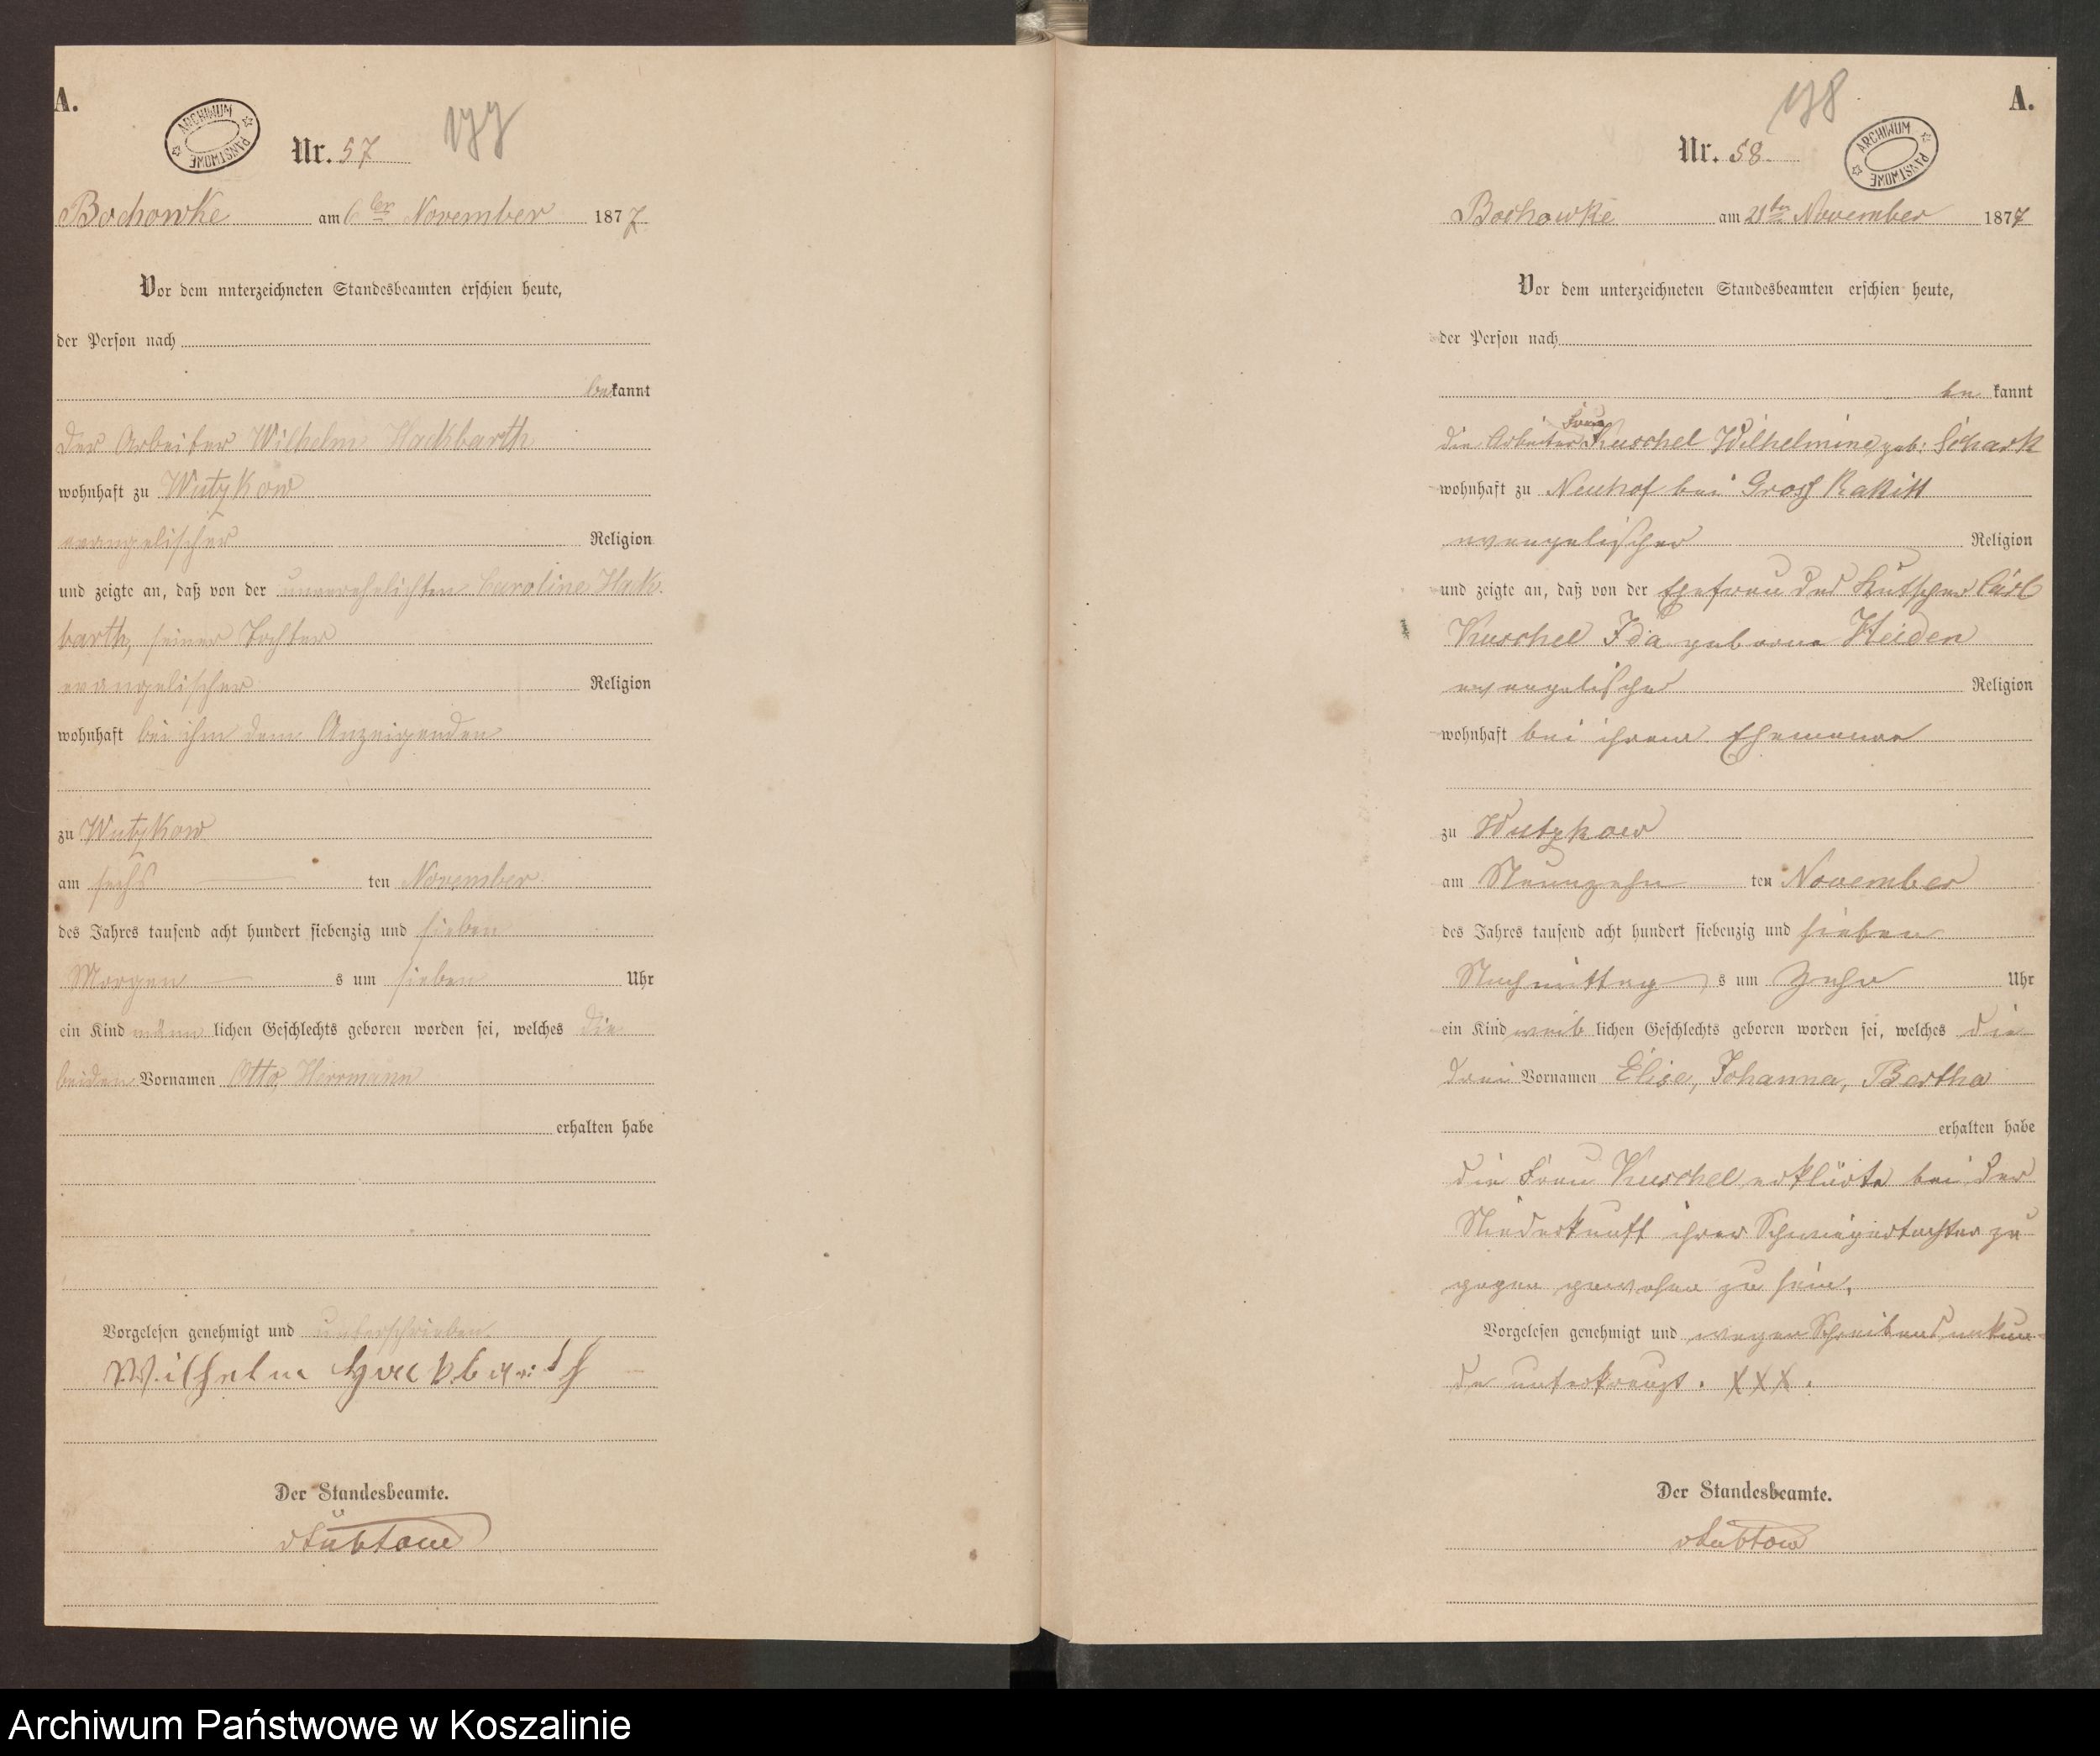 A.
ARCHIWUM PAŃSTWOWE
177
Nr. 57
Bochowke am 6ten November 1877
Vor dem unterzeichneten Standesbeamten erschien heute,
der Person nach
bekannt
der Arbeiter Wilhelm Hackbarth
wohnhaft zu Wutzkow
evangelischer Religion
und zeigte an, daß von der unverehelichten Caroline Hack
barth, seiner Tochter
evangelischer Religion
wohnhaft bei ihm dem Anzeigenden
zu Wutzkow
am sechs ten November
des Jahres tausend acht hundert siebenzig und sieben
Morgen s um sieben Uhr
ein Kind männ lichen Geschlechts geboren worden sei, welches die
beiden Vornamen Otto, Herrmann
erhalten habe
Vorgelesen genehmigt und unterschrieben
Wilhelm Hackbarth
Der Standesbeamte.
vLübtow
178
A.
ARCHIWUM PAŃSTWOWE
Nr. 58.
Bochowke am 21ten November 1877
Vor dem unterzeichneten Standesbeamten erschien heute,
der Person nach
be kannt
die Arbeiter Frau Kuschel Wilhelmine geb: Schark
wohnhaft zu Neuhof bei Gross Rakitt
evangelischer Religion
und zeigte an, daß von der Ehefrau des Kutscher Carl
Kuschel Ida geborne Heiden
evangelischer Religion
wohnhaft bei ihrem Ehemanne
zu Wutzkow
am Neunzehn ten November
des Jahres tausend acht hundert siebenzig und sieben
Nachmittag s um Zehn Uhr
ein Kind weib lichen Geschlechts geboren worden sei, welches die
drei Vornamen Elise, Johanna, Bertha
erhalten habe
die Frau Kuschel erklärte bei der
Niederkunft ihrer Schwiegertochter zu
gegen gewesen zu sein.
Vorgelesen genehmigt und wegen Schreibensunkun
de unterkreuzt. XXX.
Der Standesbeamte.
vLübtow
Archiwum Państwowe w Koszalinie